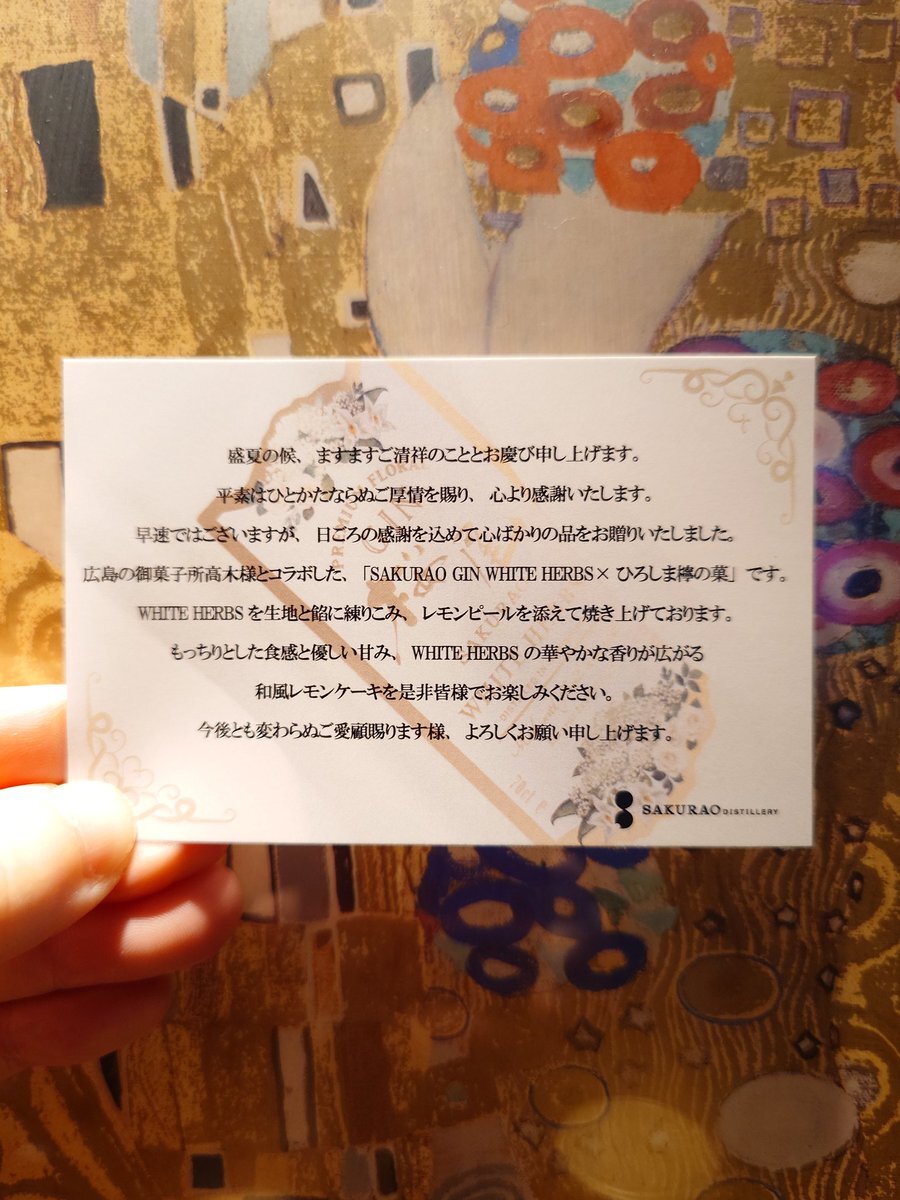 盛夏の候、ますますご清祥のこととお慶び申し上げます。
平素はひとかたならぬご厚情を賜り、心より感謝いたします。
早速ではございますが、日ごろの感謝を込めて心ばかりの品をお贈りいたしました。
広島の御菓子所高木様とコラボした、「SAKURAO GIN WHITE HERBS×ひろしま檸の菓」です。
WHITE HERBSを生地と餡に練りこみ、レモンピールを添えて焼き上げております。
もっちりとした食感と優しい甘み、WHITE HERBSの華やかな香りが広がる
和風レモンケーキを是非皆様でお楽しみください。
今後とも変わらぬご愛顧賜ります様、よろしくお願い申し上げます。
SAKURAO DISTILLERY